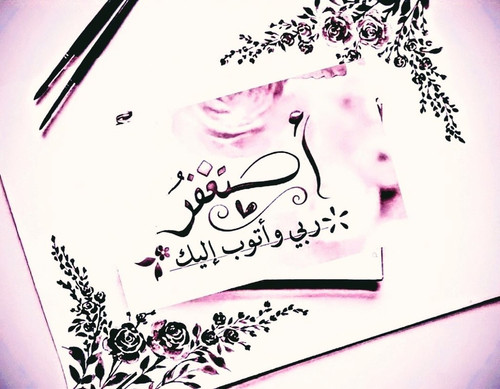 أستغفرُ
ربي وأتوب إليك